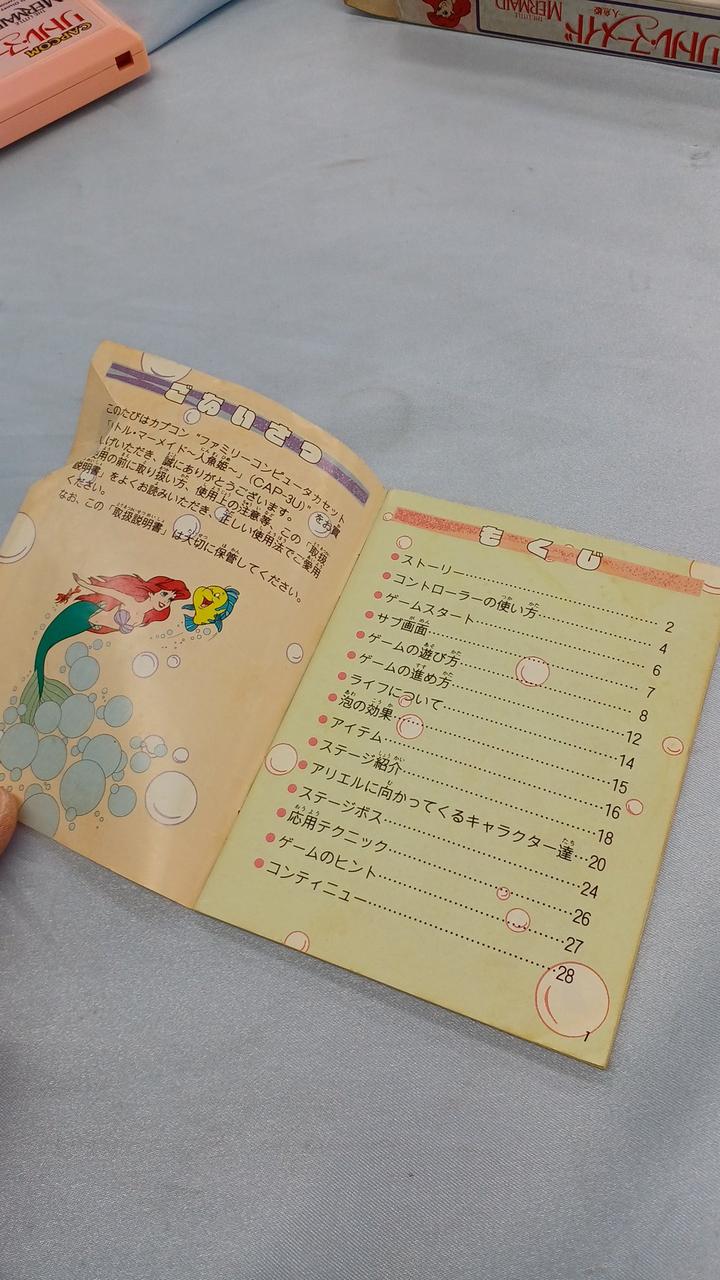 CAPCOM
リトル・マ
MERMAID
THE LITTLE
MERMAID
人魚姫
リトル・マーメイド
ごあいさつ
このたびはカプコン"ファミリーコンピュータカセット
トル・マーメイド〜人魚姫〜」(CAP-3U)をお買
げいただき、誠にありがとうございます。
用の前に取り扱い方、使用上の注意等、この「取扱
説明書」をよくお読みいただき、正しい使用法でご愛用
ください。
なお、この「取扱説明書」は大切に保管してください。
もくじ
ストーリー 2
コントローラーの使い方 4
ゲームスタート 6
サブ画面 7
ゲームの遊び方 8
ゲームの進め方 12
ライフについて 14
泡の効果 15
アイテム 16
ステージ紹介 18
アリエルに向かってくるキャラクター達 20
ステージボス 24
応用テクニック 26
ゲームのヒント 27
コンティニュー 28
1